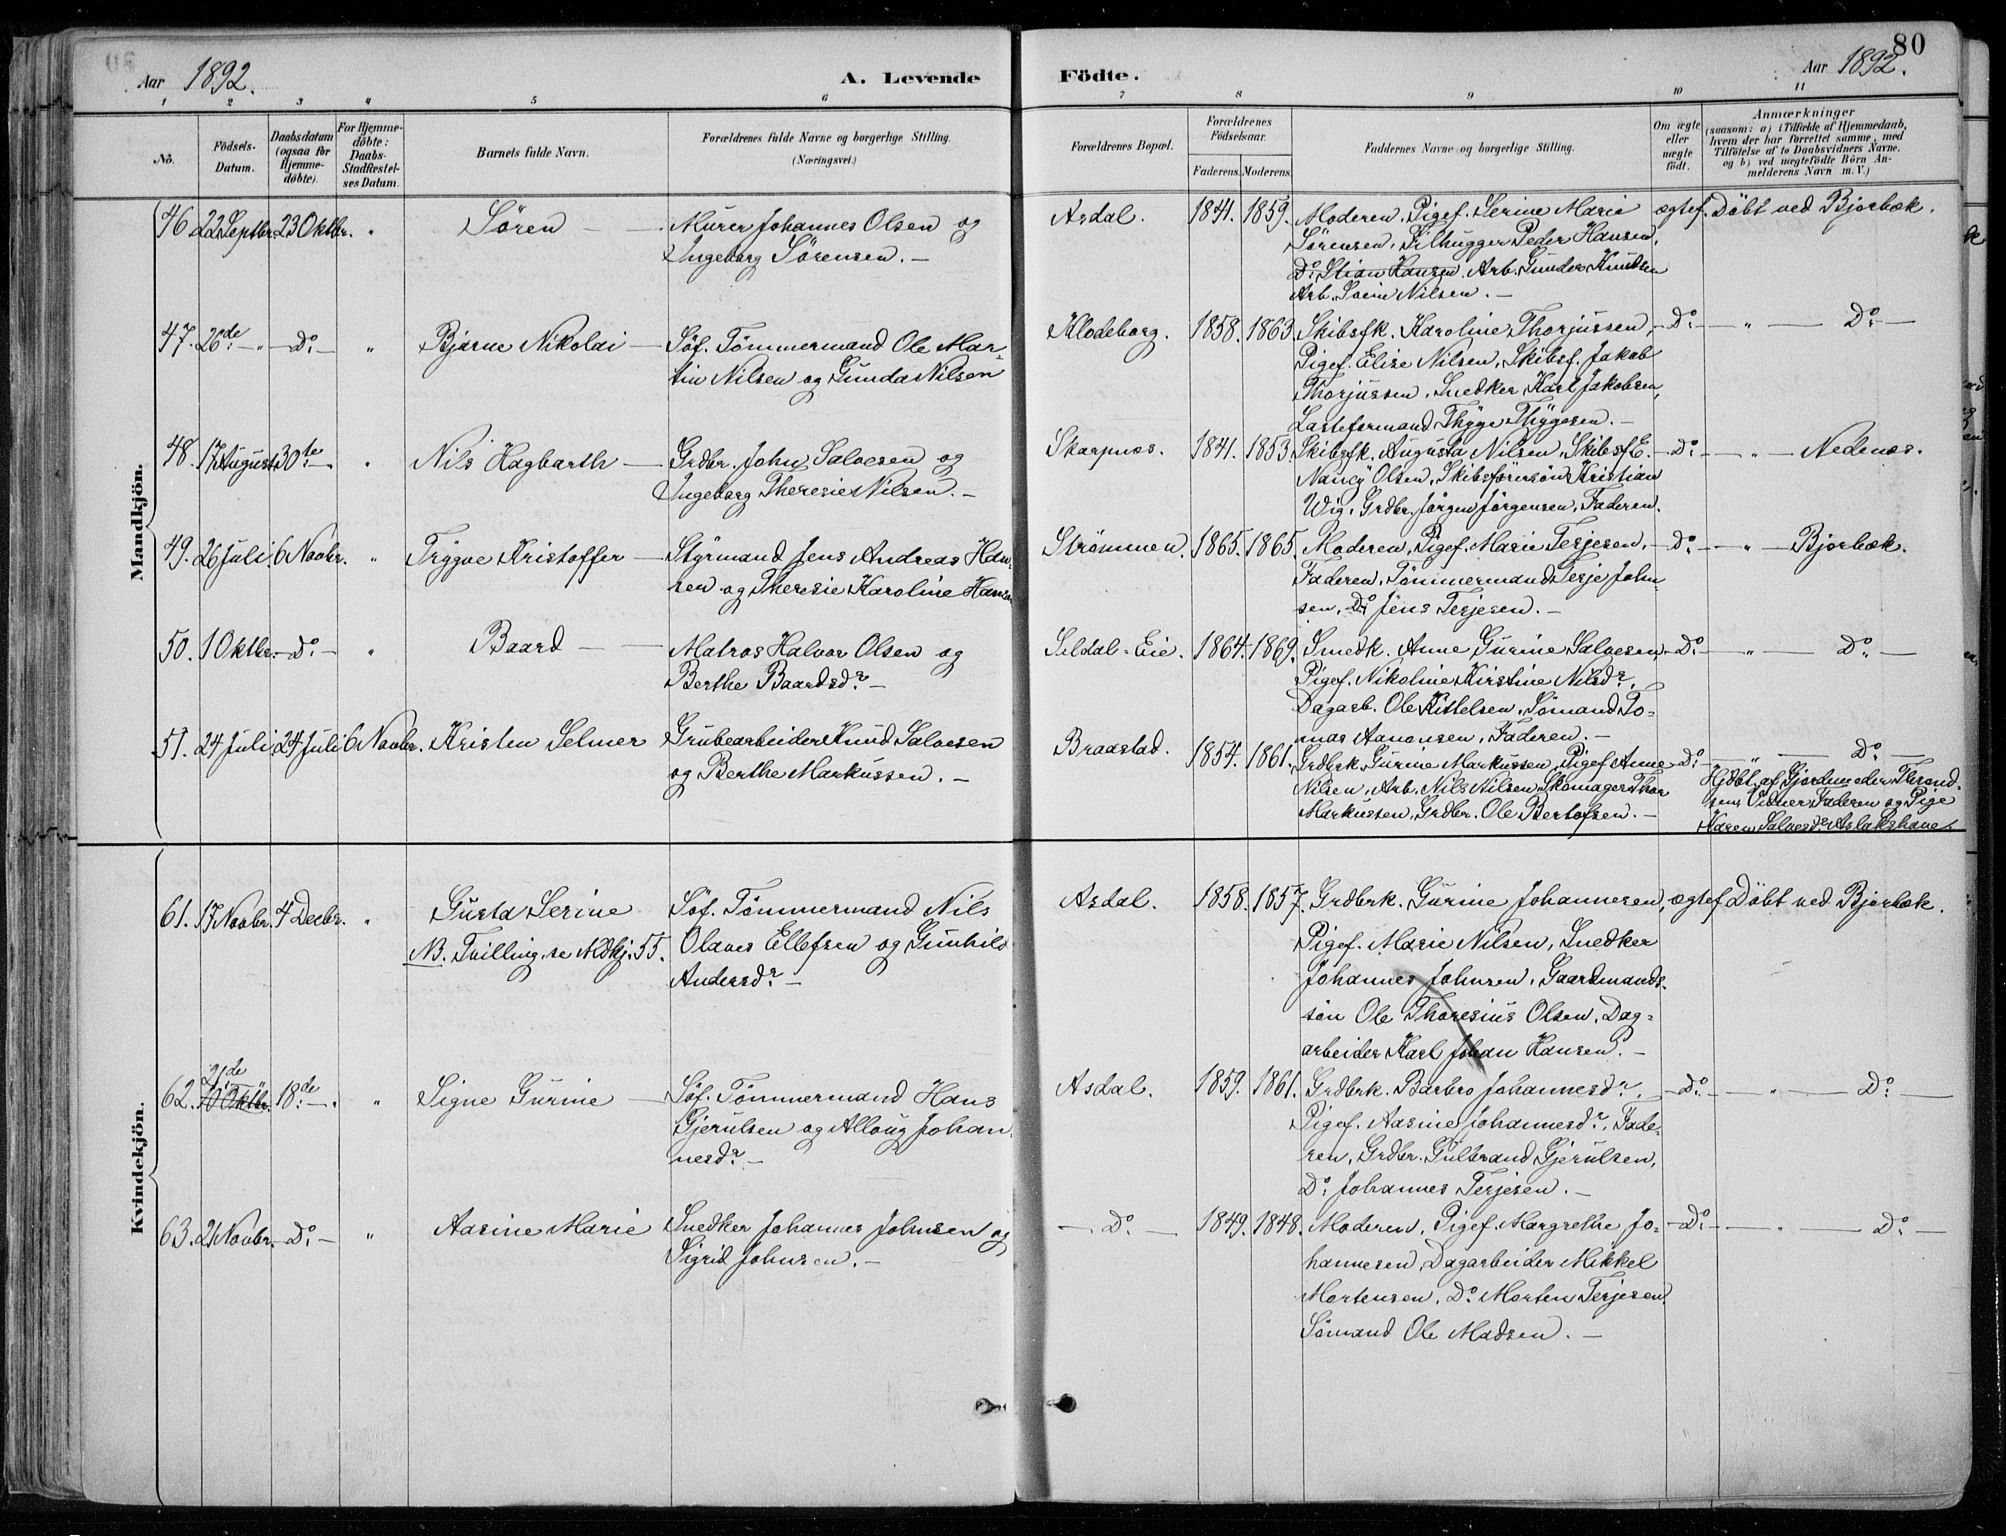 80
Aar 1892.
A. Levende Födte.
Aar 1892.
1 2 3 4 5 6 7 8 9 10 11
No.
Födsels-Datum.
Daabsdatum (ogsaa for Hjemme-döbte).
For Hjemme-döbte: Daabs-Stadfæstel-ses Datum.
Barnets fulde Navn.
Forældrenes fulde Navne og borgerlige Stilling. (Næringsvei.)
Forældrenes Bopæl.
Forældrenes Födselsaar.
Faderens. Moderens.
Faddernes Navne og borgerlige Stilling.
Om ægte eller uægte født.
Anmærkninger
(saasom: a) i Tilfælde af Hjemmedaab,
hvem der har forrettet samme, med
Tilföielse af to Daabsvidners Navne.
og b) ved uægtefödte Börn An-
melderens Navn m. V.)
Mandkjön.
46. 22 Septbr. 23 Oktbr. " Søren — Murer Johannes Olsen og
Ingeborg Sørensen. —
Asdal. 1841. 1859. Moderen, Pigef. Serine Marie
Sørensen, Filhugger Peder Hansen,
Do. Stian Hansen. Arb. Gunder Knudsen
Arb. Svein Nilsen. —
ægtef. Döbt ved Bjorbæk.
47. 26de — " — Do — " Bjarne Nikolai — Söf. Tömmermand Ole Mar-
tin Nilsen og Gunda Nilsen
Klodeborg. 1858. 1863. Skibsfk. Karoline Thorjussen,
Pigef. Elise Nilsen, Skibsf. Jakob
Thorjussen, Snedker Karl Jakobsen,
Lasteformand Thyge Thygesen. —
— Do — " — Do —
48. 17 August 30te — " " Nils Hagbarth — Grdbr. John Salvesen og
Ingeborg Theresie Nilsen. —
Skarpnæs. 1841. 1853. Skibsfk. Augusta Nilsen, Skibsf E.
Nancy Olsen, Skibsförersön Kristian
Wig, Grdbr. Jørgen Jørgensen, Faderen.
— Do — " — Nedenæs.
49. 26 Juli 6 Novbr. " Trygve Kristoffer — Styrmand Jens Andreas Han-
sen og Theresie Karoline Hansen
Strömmen. 1865. 1865. Moderen, Pigef. Marie Terjesen,
Faderen, Tömmermand Terje John-
sen, Do Jens Terjesen. —
— Do — " — Bjorbæk.
50. 1 Oktbr. — Do — " Baard — Matros Halvor Olsen og
Berthe Baardsdr —
Seldal-Eie. 1864. 1869. Smedk. Anne Gurine Salvesen,
Pigef. Nikoline Kirstine Nilsdr,
Dagarb. Ole Kittelsen, Sømand To-
mas Aanonsen, Faderen. —
— Do — " — Do —
51. 24 Juli 24 Juli 6 Novbr. Kristen Selmer Grubearbeider Knud Salvesen
og Berthe Markussen. —
Braastad. 1854. 1861. Grdbrk. Gurine Markussen, Pigef Anne
Nilsen, Arb. Nils Nilsen, Skomager Thor
Markussen, Grdbr. Ole Bertofsen. —
— Do — " — Do —
Hjdbt. af Gjordemoder Thrond-
sen, Vidner, Faderen og Pige
Karen Salvesdr Aslakshave.
Kvindekjön.
61. 17 Novbr. 4 Decbr. " Gusta Serine
NB. Tvilling, se Mdkj. 55.
Söf. Tömmermand Nils
Olaves Ellefsen og Gunhild
Andersdr —
Asdal. 1858. 1857. Grdbrk. Gurine Johannesen,
Pigef. Marie Nilsen, Snedker
Johannes Johnsen, Gaardmands-
sön Ole Thoresius Olsen, Dag-
arbeider Karl Johan Hansen. —
ægtef. Döbt ved Bjorbæk.
21de
62. 10 Oktbr. 18de — " " Signe Gurine — Söf. Tömmermand Hans
Gjerulsen og Alloug Johan-
nesdr —
Asdal. 1859. 1861. Grdbrk. Barbro Johannesdr,
Pigef. Aasine Johannesdr, Fade-
ren, Grdbr. Gulbrand Gjerulsen,
Do Johannes Terjesen. —
— Do — " — Do —
63. 21 Novbr. — Do — " Aasine Marie Snedker Johannes Johnsen og
Sigrid Johnsen. —
— Do — 1849. 1848. Moderen, Pigef. Margrethe Jo-
hannesen, Dagarbeider Mikkel
Mortensen, Do Morten Terjesen,
Sømand Ole Madsen. —
— Do — " — Do —